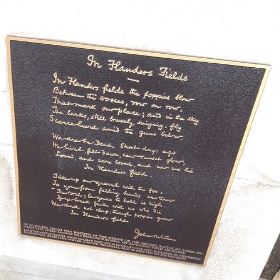 In Flanders Fields
In Flanders fields the poppies blow
Between the crosses, row on row,
That mark our place; and in the sky
The larks, still bravely singing, fly
Scarce heard amid the guns below.
We are the Dead. Short days ago
We lived, felt dawn, saw sunset glow,
Loved, and were loved, and now we lie
In Flanders fields.
Take up our quarrel with the foe:
To you from failing hands we throw
The torch; be yours to hold it high.
If ye break faith with us who die
We shall not sleep, though poppies grow
In Flanders fields